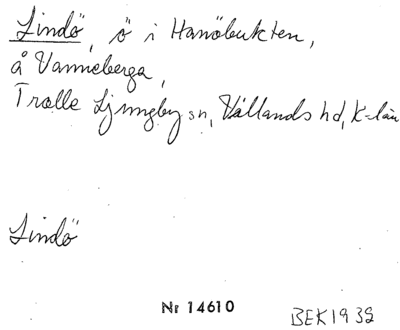 Lindö, ö i Hanöbukten,
å Vanneberga,
Trolle Ljungby sn, Villands hd, K-län
Lindö
Nr 14610
BEK1939